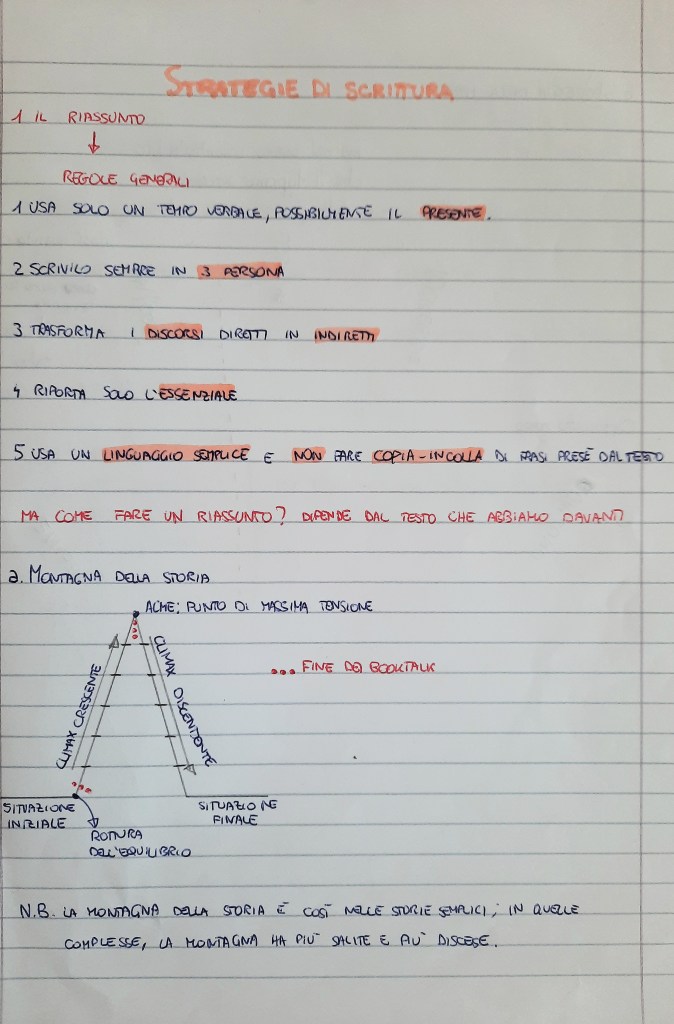 STRATEGIE DI SCRITTURA
1 IL RIASSUNTO
REGOLE GENERALI
1 USA SOLO UN TEMPO VERBALE, POSSIBILMENTE IL PRESENTE.
2 SCRIVILO SEMPRE IN 3 PERSONA
3 TRASFORMA I DISCORSI DIRETTI IN INDIRETTI
4 RIPORTA SOLO L'ESSENZIALE
5 USA UN LINGUAGGIO SEMPLICE E NON FARE COPIA-INCOLLA DI FRASI PRESE DAL TESTO
MA COME FARE UN RIASSUNTO? DIPENDE DAL TESTO CHE ABBIAMO DAVANTI
a. MONTAGNA DELLA STORIA
ACME: PUNTO DI MASSIMA TENSIONE
CLIMAX CRESCENTE
CLIMAX DISCENDENTE
... FINE DEI BOOKTALK
SITUAZIONE
INIZIALE
ROTTURA
DELL'EQUILIBRIO
SITUAZIONE
FINALE
N.B. LA MONTAGNA DELLA STORIA È COSÌ NELLE STORIE SEMPLICI; IN QUELLE
COMPLESSE, LA MONTAGNA HA PIÙ SALITE E PIÙ DISCESE.